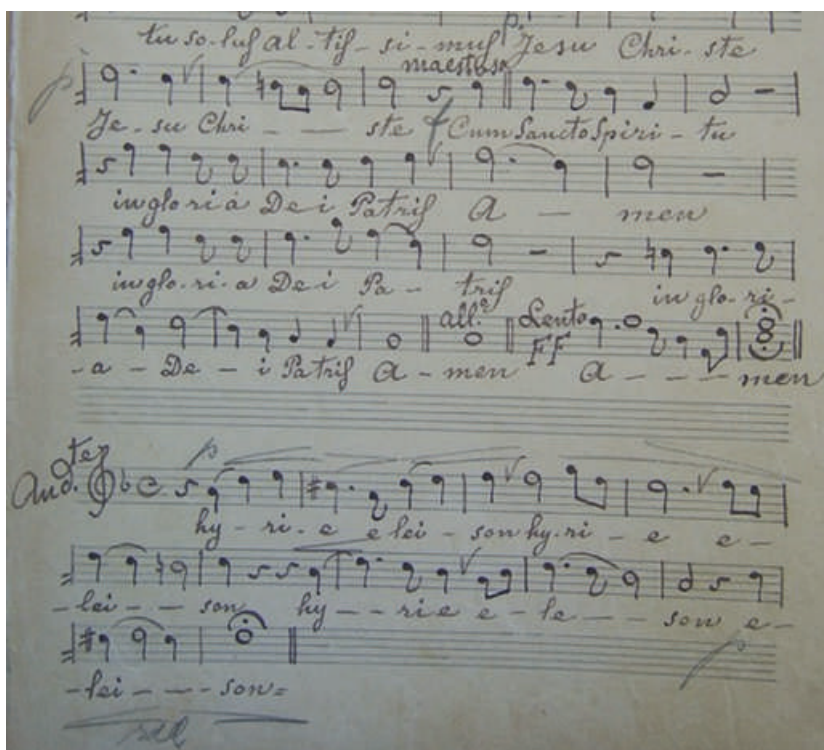 p.
tu so-luſ al-tiſ-si-muſ Jesu Chri-ste
maestoso
p
Je-su Chri - - ste f Cum Sancto Spiri-tu
in gloria Dei Patriſ A - men
in glo-ri-a Dei Pa - triſ in glo-ri-
all.º Lento FF
-a - De - i Patriſ A - men A - - - men
And. ten p
hy-ri-e e lei-son hy-ri-e e-
-lei - - son hy - - rie e-le - - son e-
p
-lei - - - son=